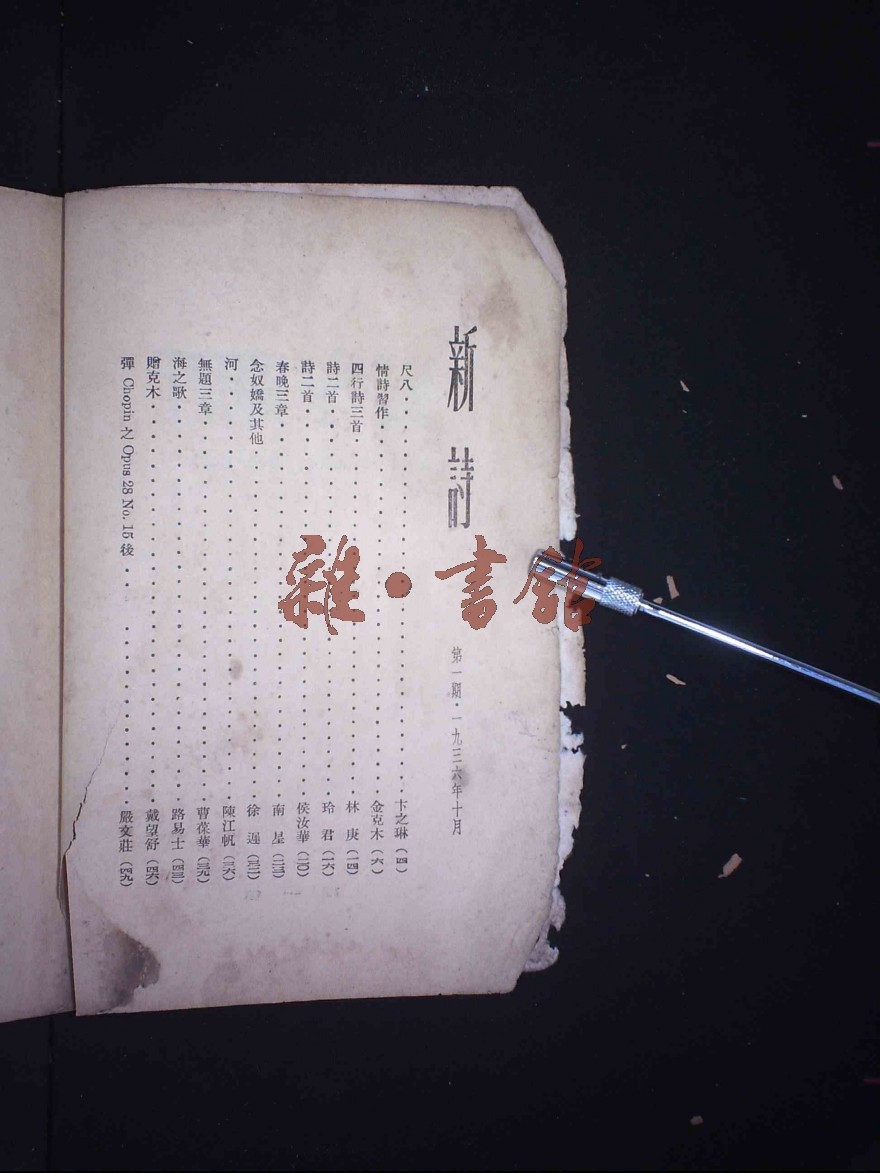 新詩
第一期·一九三六年十月
尺八 卞之琳(四)
情詩習作 金克木(六)
四行詩三首 林庚(一四)
詩二首 玲君(一六)
詩二首 侯汝華(二〇)
春晚三章 南星(二三)
念奴嬌及其他 徐遲(三二)
河 陳江帆(三六)
無題三章 曹葆華(三九)
海之歌 路易士(四三)
贈克木 戴望舒(四六)
彈 Chopin 之 Opus 28 No. 15 後 嚴文莊(四九)
雜·書館